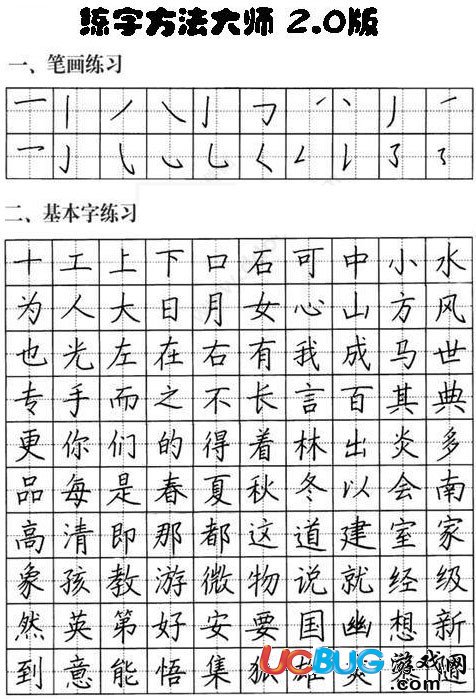 练字方法大师 2.0版
一、笔画练习
二、基本字练习
十工上下口石可中小水
为人大日月女心山方风
也光左在右有我成马世
专手而之不长言百其典
更你们的得着林出炎多
品每是春夏秋冬以会南
高清即那都这道建室家
象孩教游微物说就经级
然英第好安要国幽想新
到意能悟集狐雄
UCBUG游戏网
.com